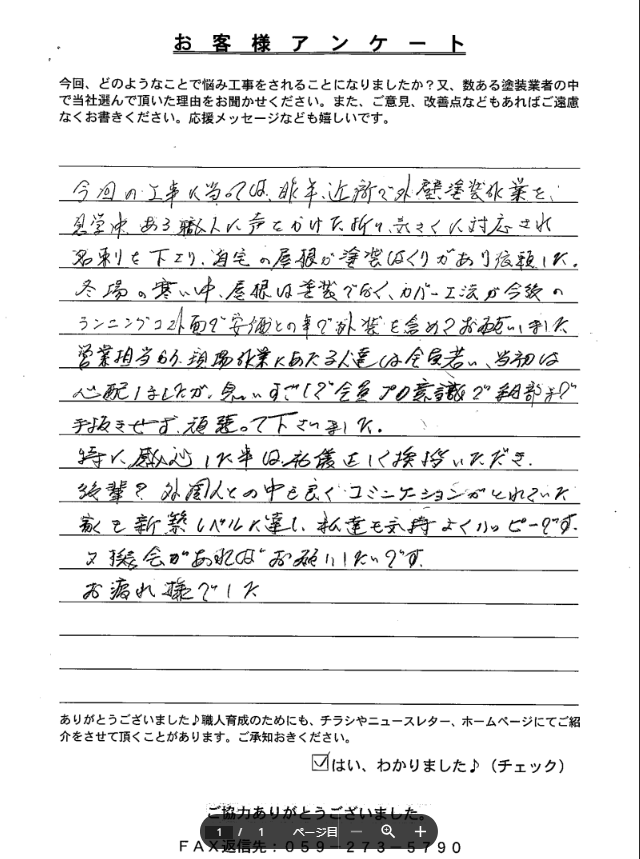 お客様アンケート
今回、どのようなことで悩み工事をされることになりましたか？又、数ある塗装業者の中
で当社選んで頂いた理由をお聞かせください。また、ご意見、改善点などもあればご遠慮
なくお書きください。応援メッセージなども嬉しいです。
今回の工事に当っては、昨年、近所で外壁塗装作業を、
見学中、ある職人に声をかけた折り、気さくに対応され
名刺を下さり、自宅の屋根が塗装はくりがあり依頼した。
冬場の寒い中、屋根は塗装でなく、カバー工法が今後の
ランニングコスト面で安価との事で外装を含めてお願いしました
営業担当から現場作業にあたる人達は全員若い、当初は
心配しましたが、見ていすごしで全員プロ意識で細部まで
手抜きせず、頑張って下さいました。
特に、感心した事は、礼儀正しく挨拶いただき、
後輩？外国人との中も良くコミニケーションがとれていた
家も新築レベルに達し、私達も気持よくハッピーです。
又機会があればお願いしたいです。
お疲れ様でした
ありがとうございました♪職人育成のためにも、チラシやニュースレター、ホームページにてご紹
介をさせて頂くことがあります。ご承知おきください。
☑はい、わかりました♪（チェック）
ご協力ありがとうございました。
1 / 1 ページ目
FAX返信先：059-273-5790